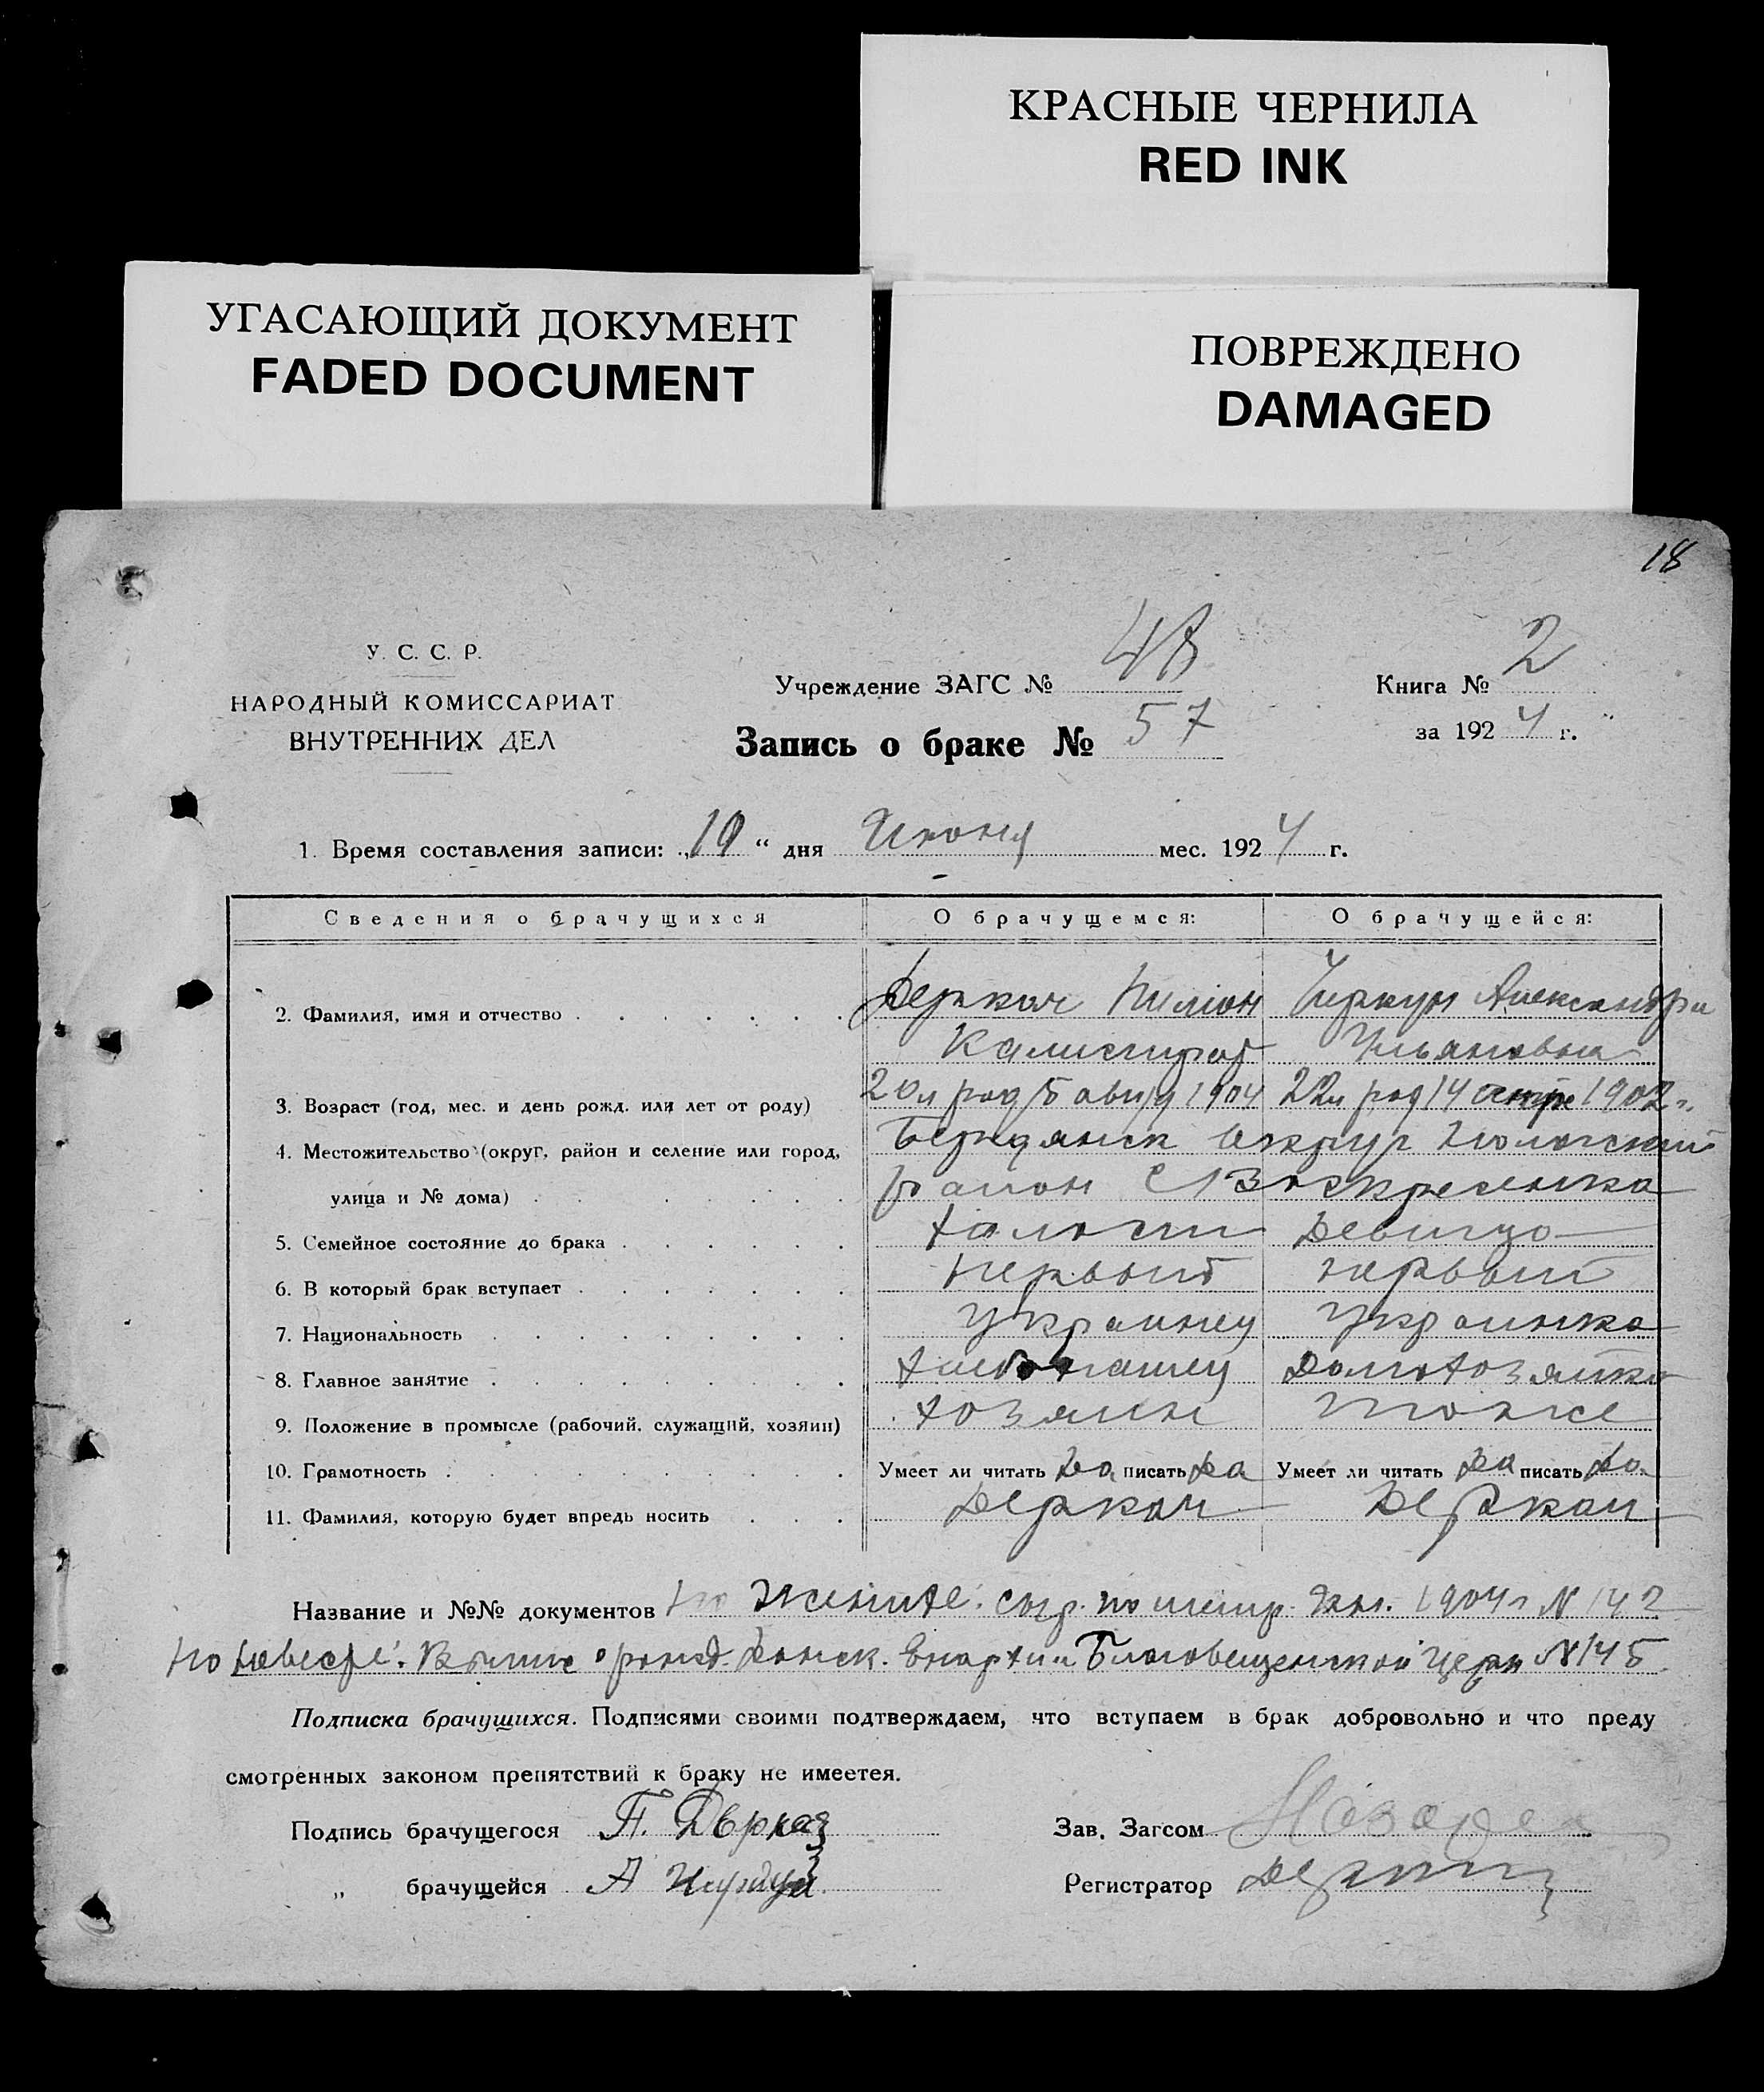 КРАСНЫЕ ЧЕРНИЛА
RED INK
УГАСАЮЩИЙ ДОКУМЕНТ
FADED DOCUMENT
ПОВРЕЖДЕНО
DAMAGED
18
У. С. С. Р.
НАРОДНЫЙ КОМИССАРИАТ
ВНУТРЕННИХ ДЕЛ
Учреждение ЗАГС № 48
Книга № 2
Запись о браке № 57
за 1924 г.
1. Время составления записи: „10“ дня Июня мес. 1924 г.
Сведения о брачущихся О брачущемся: О брачущейся:
2. Фамилия, имя и отчество Деркач Пилип Александра
Калистрат Ульяновна
3. Возраст (год, мес. и день рожд. или лет от роду) 20 л род 5 авг 1904 22 л род 14 1902 г.
4. Местожительство (округ, район и селение или город, Бердянск Округ
улица и № дома) район с Воскресенка
5. Семейное состояние до брака холост девица
6. В который брак вступает первый первый
7. Национальность украинец украинка
8. Главное занятие хлебопашец домохозяйка
9. Положение в промысле (рабочий, служащий, хозяин) хозяин тоже
10. Грамотность Умеет ли читать да писать да Умеет ли читать да писать да
11. Фамилия, которую будет впредь носить Деркач Деркач
Название и №№ документов по женихе: 1904 г N 142
по невесте: Выпись о рожд. Епархии Благовещенской Церк N 145
Подписка брачущихся. Подписями своими подтверждаем, что вступаем в брак добровольно и что преду
смотренных законом препятствий к браку не имеетея.
Подпись брачущегося П. Деркач
Зав. Загсом
„ брачущейся А
Регистратор